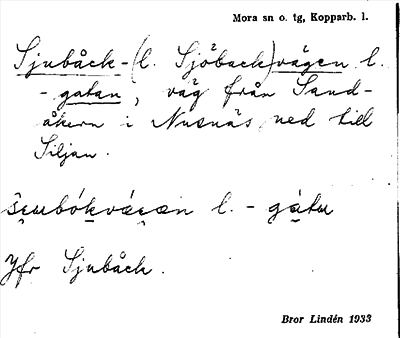 Mora sn o. tg, Kopparb. l.
Sjubåck-(l. Sjöback)vägen l.
- gatan, väg från Sand-
åkern i Nusnäs ned till
Siljan.
l. - gátu
Jfr Sjubåck.
Bror Lindén 1933